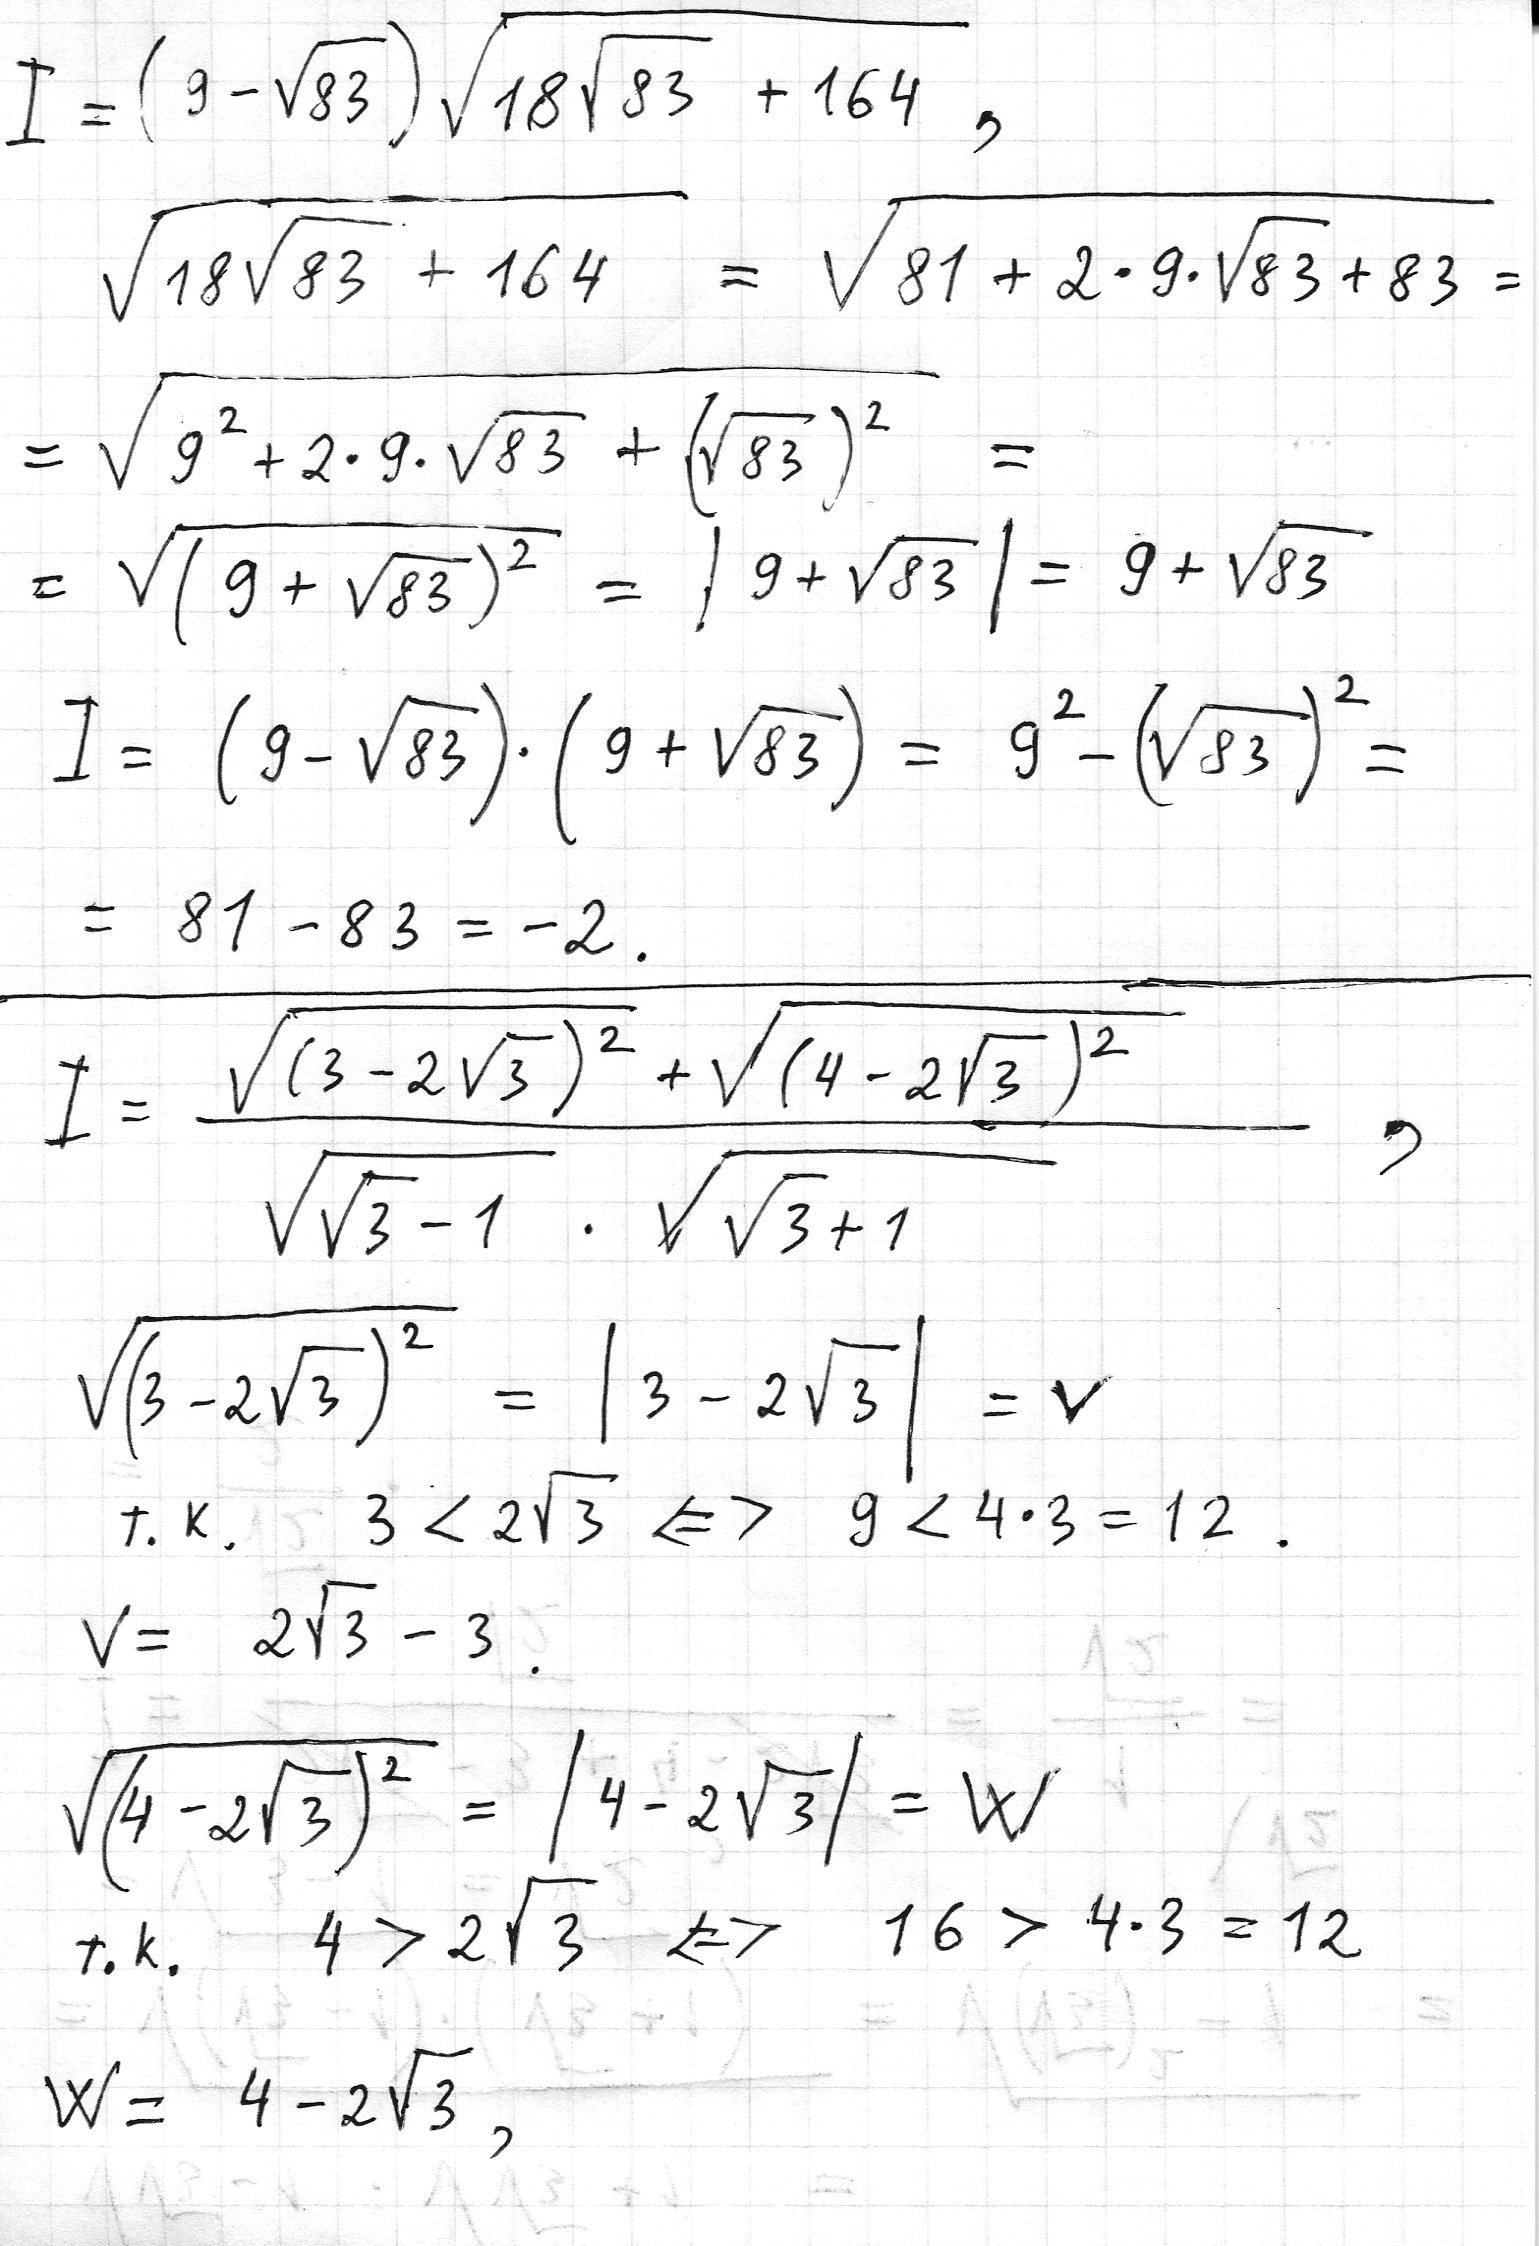 I = (9 - √83) √(18√83 + 164) ,
√(18√83 + 164) = √(81 + 2·9·√83 + 83) =
= √(9² + 2·9·√83 + (√83)²) =
= √((9 + √83)²) = |9 + √83| = 9 + √83
I = (9 - √83)·(9 + √83) = 9² - (√83)² =
= 81 - 83 = -2.
I = (√((3 - 2√3)²) + √((4 - 2√3)²)) / (√(√3 - 1) · √(√3 + 1)) ,
√((3 - 2√3)²) = |3 - 2√3| = v
т.к. 3 < 2√3 <=> 9 < 4·3 = 12.
V = 2√3 - 3.
√((4 - 2√3)²) = |4 - 2√3| = W
т.к. 4 > 2√3 <=> 16 > 4·3 = 12
W = 4 - 2√3,